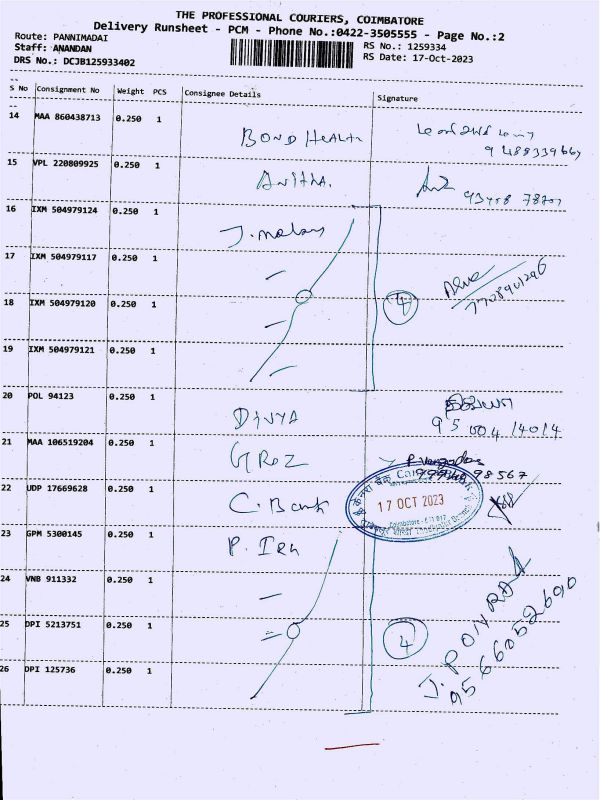 THE PROFESSIONAL COURIERS, COIMBATORE
Delivery Runsheet - PCM - Phone No.:0422-3505555 - Page No.:2
Route: PANNIMADAI
RS No.: 1259334
Staff: ANANDAN
RS Date: 17-Oct-2023
DRS No.: DCJB125933402
S No Consignment No Weight PCS Consignee Details Signature
14 MAA 860438713 0.250 1
BOND HEALTH
15 VPL 220809925 0.250 1
Anitha.
16 IXM 504979124 0.250 1
17 IXM 504979117 0.250 1
18 IXM 504979120 0.250 1
4
19 IXM 504979121 0.250 1
20 POL 94123 0.250 1
DIVYA திவ்யா
95004 14014
21 MAA 106519204 0.250 1
GROZ
22 UDP 17669628 0.250 1
C. Bank
17 OCT 2023
23 GPM 5300145 0.250 1
24 VNB 911332 0.250 1
25 DPI 5213751 0.250 1
4
J. PONRAJ
9566052690
26 DPI 125736 0.250 1